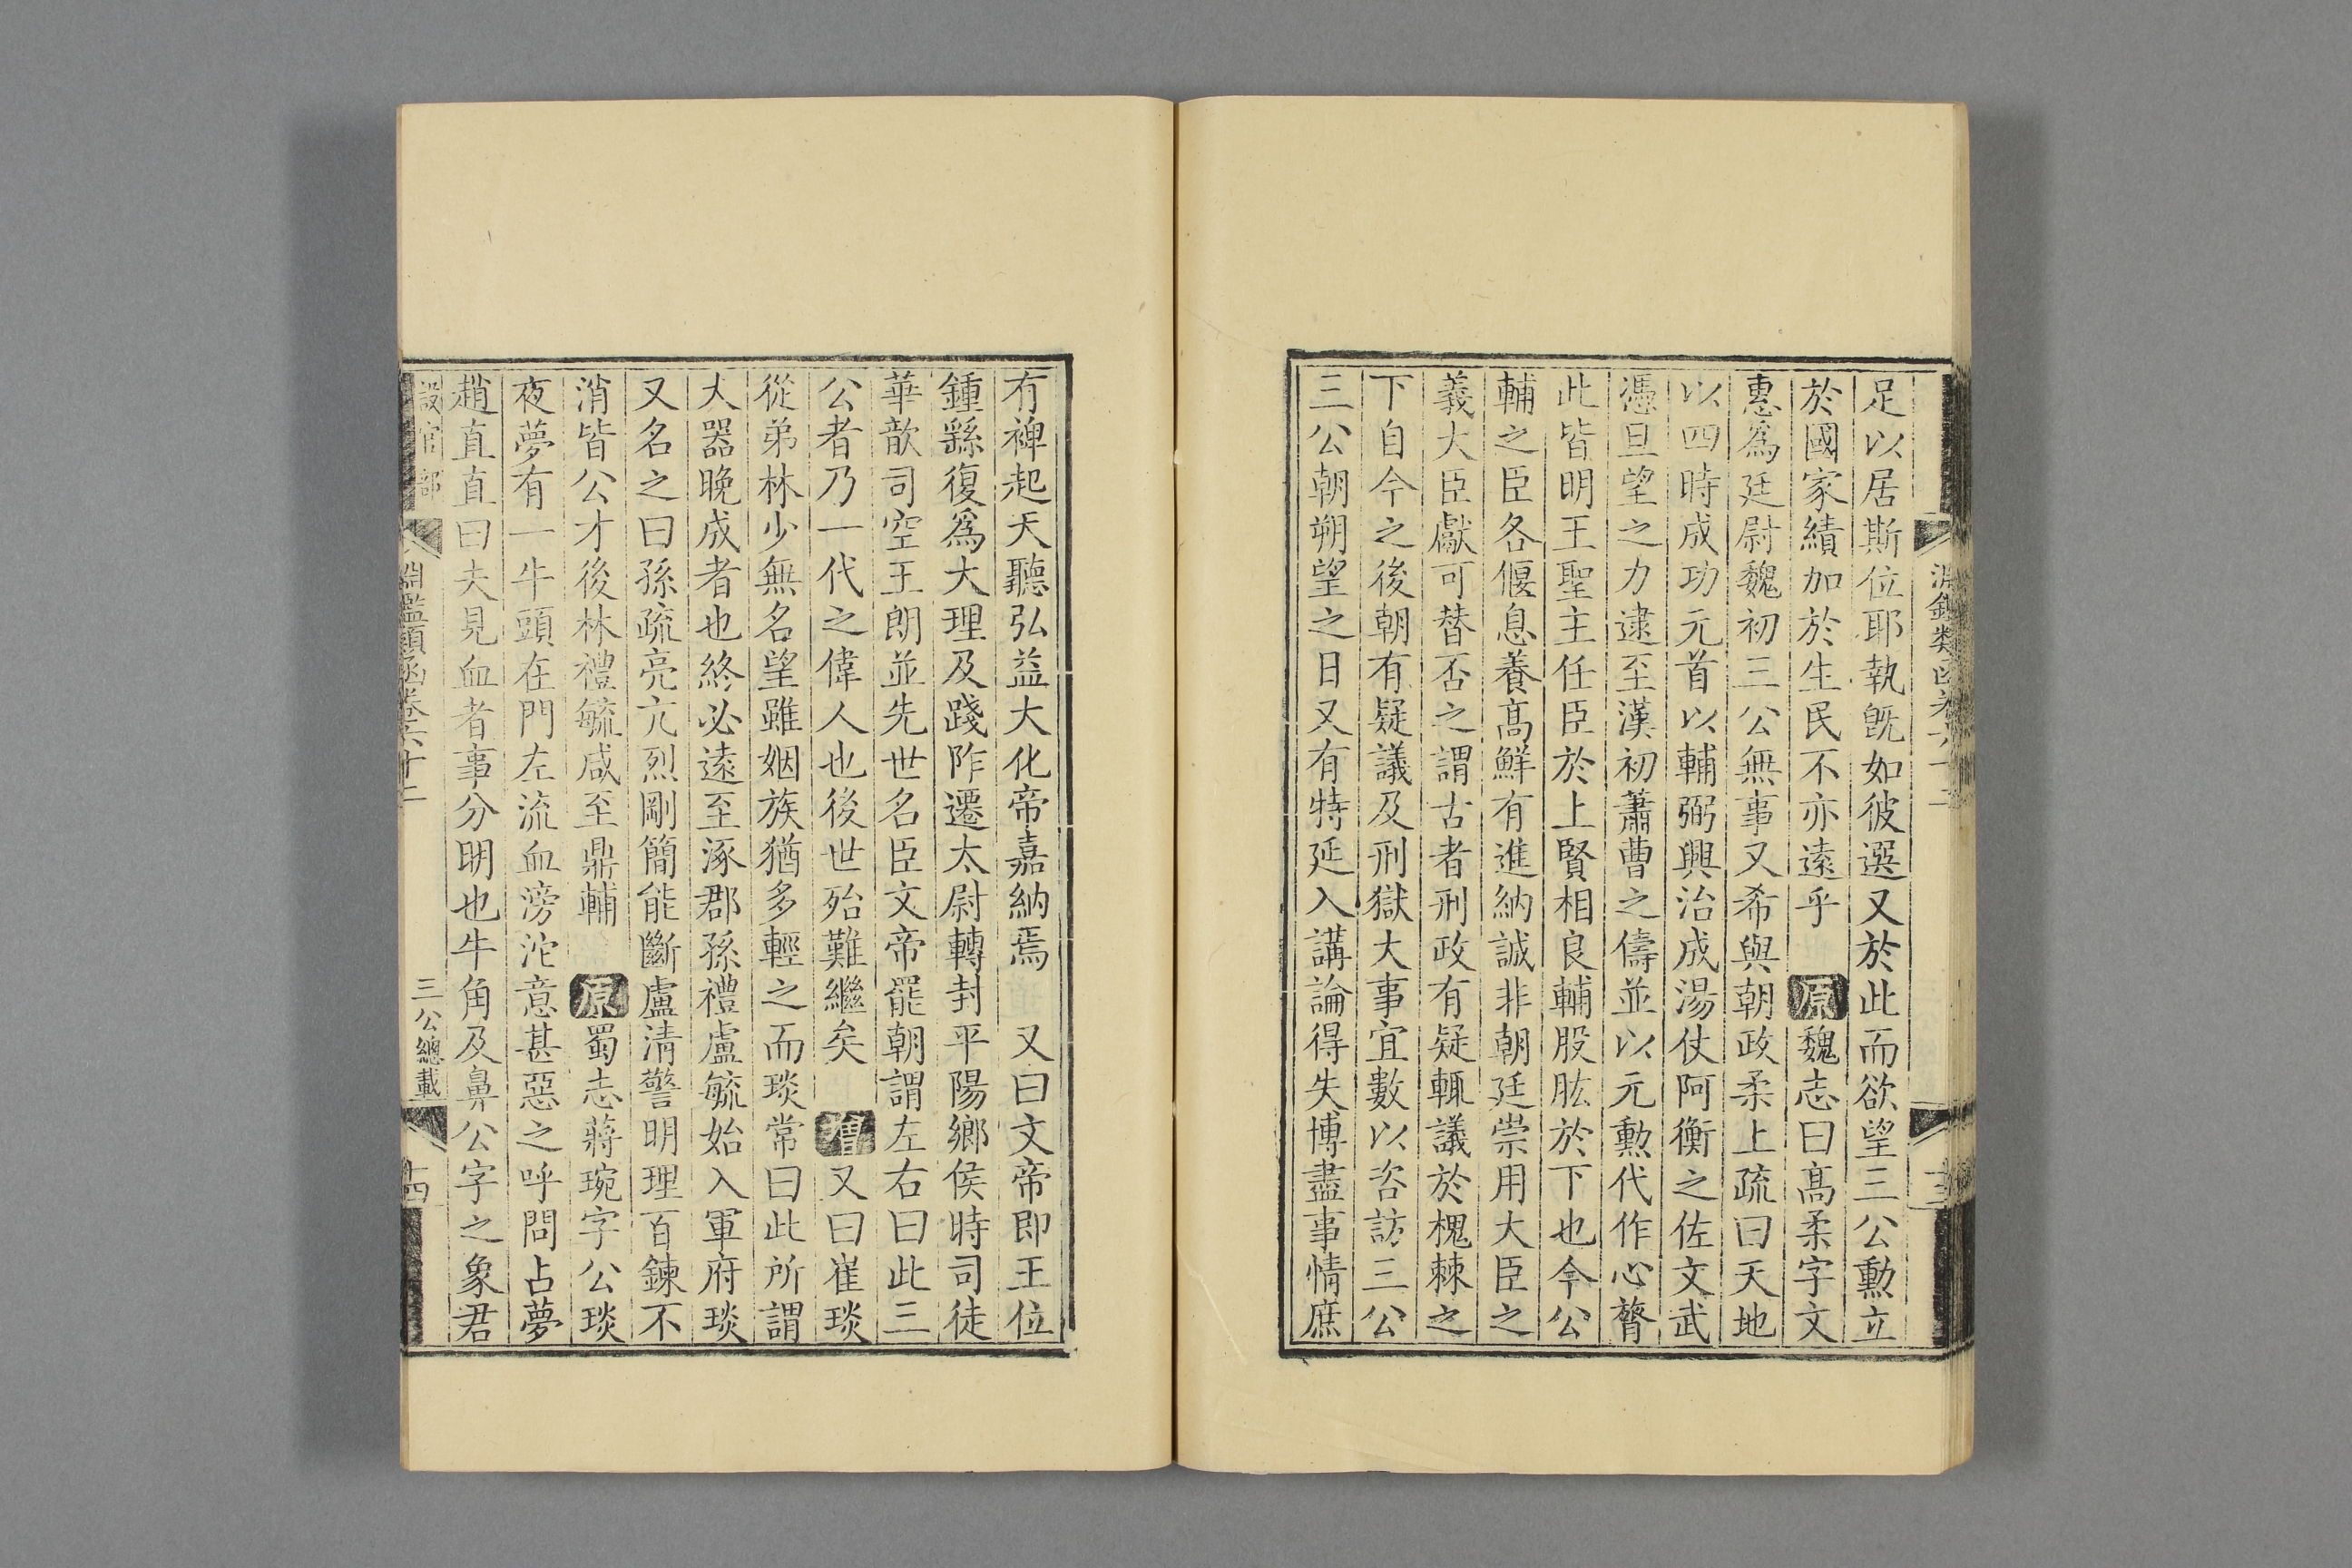 足以居斯位耶執旣如彼選又於此而欲望三公勲立
於國家績加於生民不亦遠乎 原魏志曰髙柔字文
惠爲廷尉魏初三公無事又希與朝政柔上疏曰天地
以四時成功元首以輔弼興治成湯仗阿衡之佐文武
憑旦望之力逮至漢初蕭曹之儔並以元勲代作心膂
此皆明王聖主任臣於上賢相良輔股肱於下也今公
輔之臣各偃息養髙鮮有進納誠非朝廷崇用大臣之
義大臣獻可替否之謂古者刑政有疑輒議於槐棘之
下自今之後朝有疑議及刑獄大事宜數以咨訪三公
三公朝朔望之日又有特延入講論得失博盡事情庶
有裨起天聽弘益大化帝嘉納焉 又曰文帝即王位
鍾繇復爲大理及踐阼遷太尉轉封平陽鄉侯時司徒
華歆司空王朗並先世名臣文帝罷朝謂左右曰此三
公者乃一代之偉人也後世殆難繼矣 增又曰崔琰
從弟林少無名望雖姻族猶多輕之而琰常曰此所謂
大器晚成者也終必遠至涿郡孫禮盧毓始入軍府琰
又名之曰孫疏亮亢烈剛簡能斷盧清警明理百鍊不
消皆公才後林禮毓咸至鼎輔 原蜀志蔣琬字公琰
夜夢有一牛頭在門左流血滂沱意甚惡之呼問占夢
趙直直曰夫見血者事分明也牛角及鼻公字之象君
設官部 淵鑑類函卷六十二 三公總載 十四